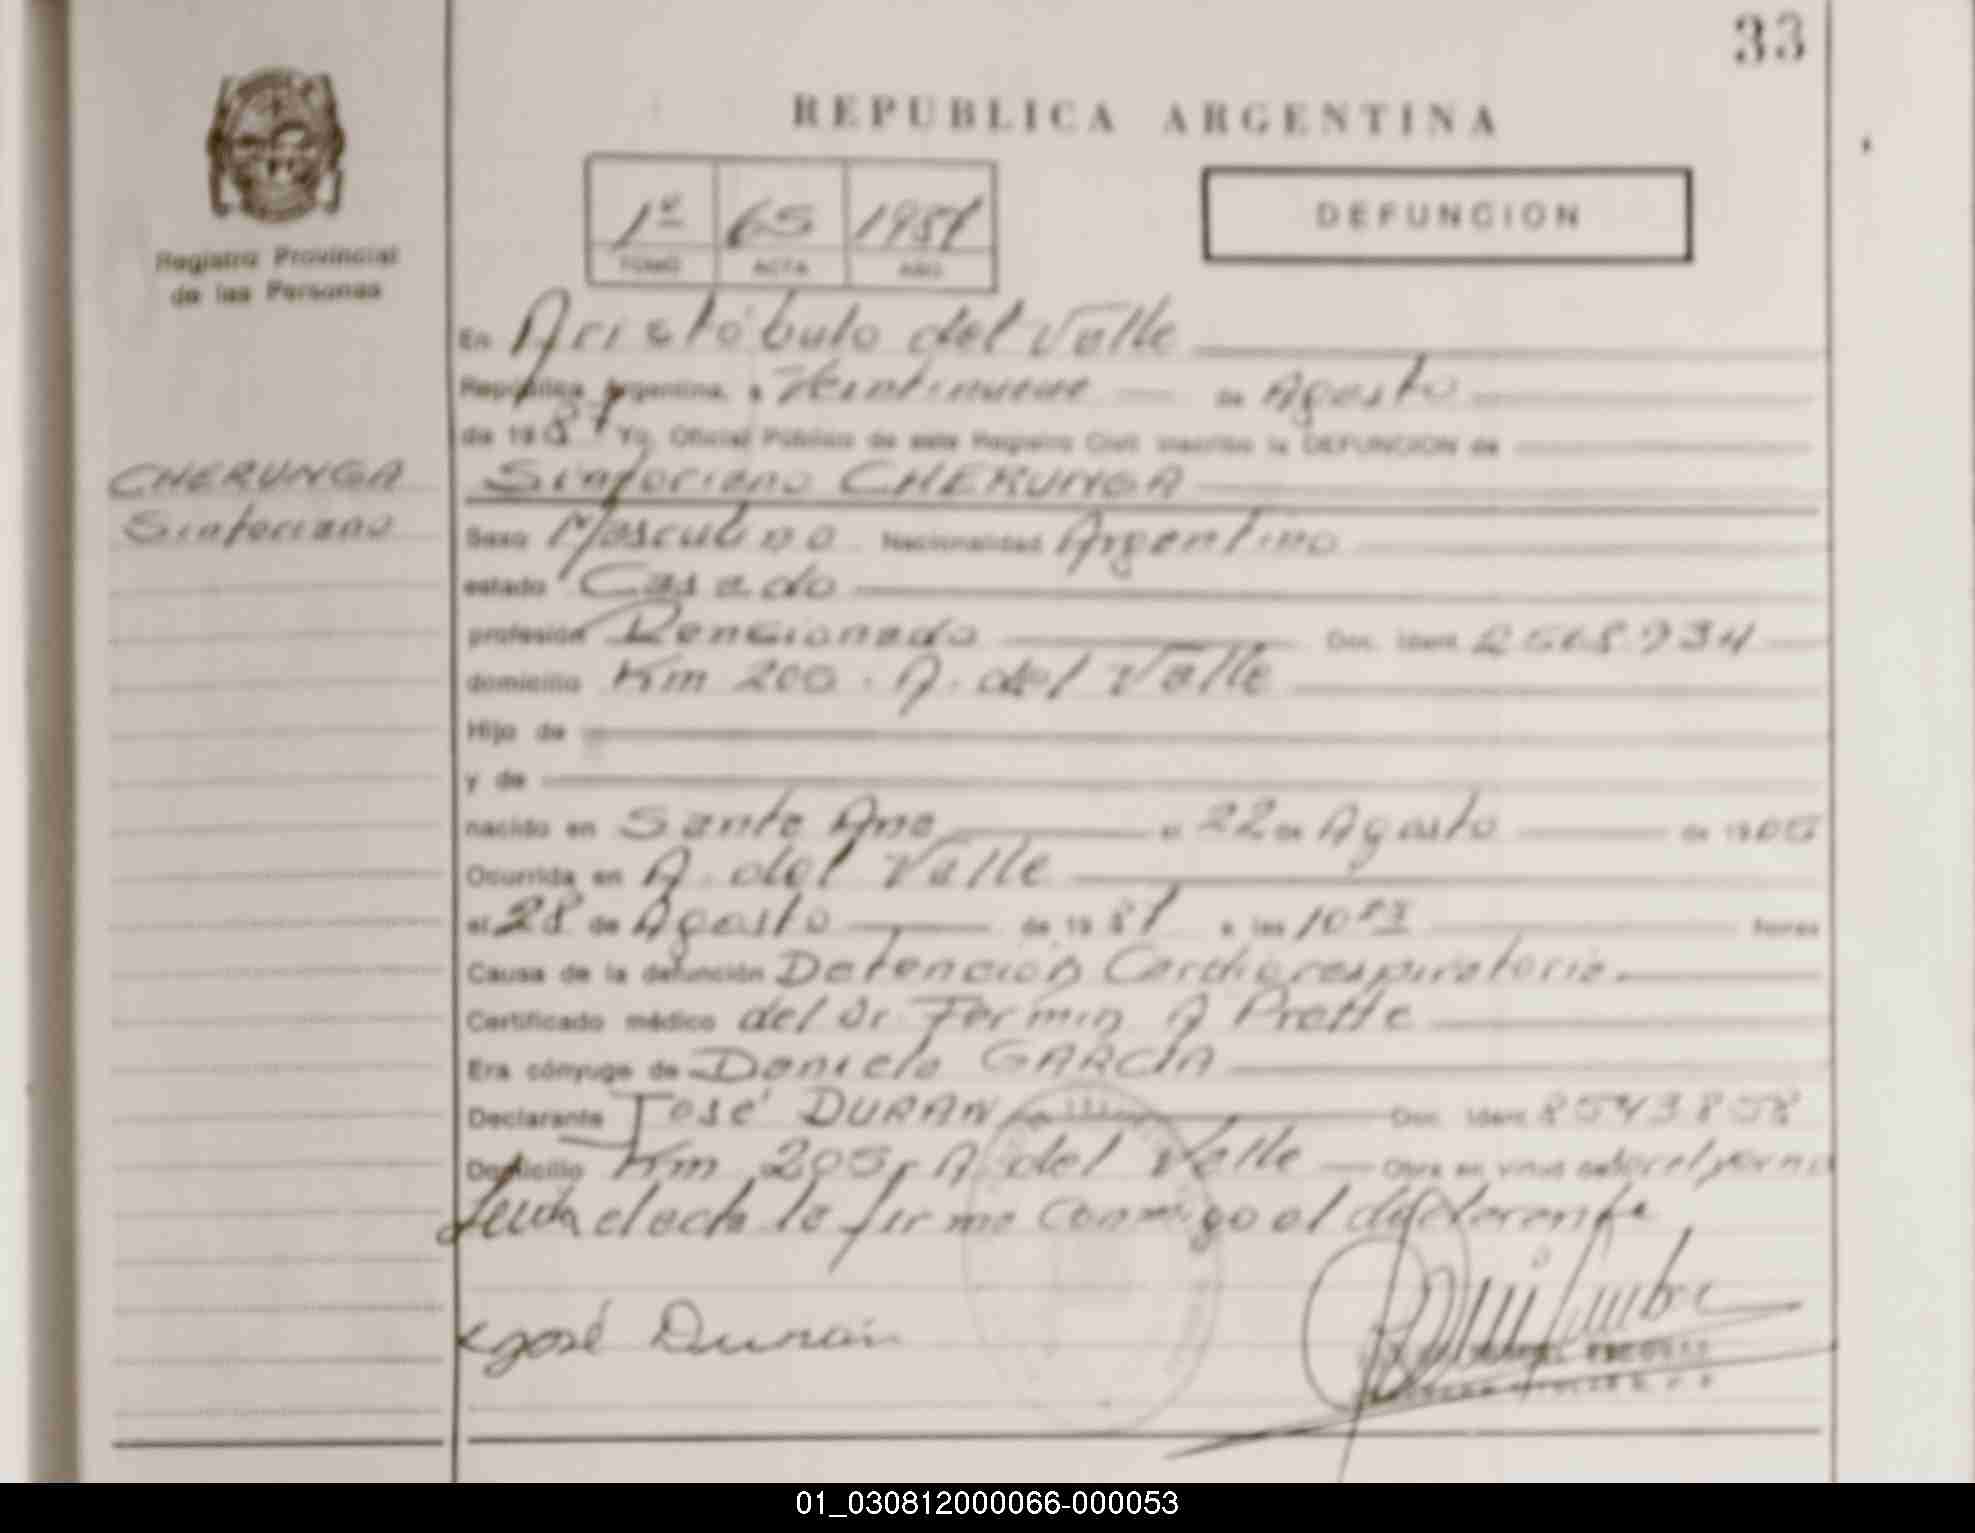 33
REPUBLICA ARGENTINA
1º 65 1987
TOMO ACTA AÑO
DEFUNCION
Registro Provincial
de las Personas
En Aristóbulo del Valle
República Argentina, a Veintinueve de Agosto
de 1987 Yo, Oficial Público de este Registro Civil inscribo la DEFUNCION de
CHERUNGA
Sinforiano
Sinforiano CHERUNGA
Sexo Masculino Nacionalidad Argentino
estado Casado
profesión Pensionado Doc. Ident.
domicilio Km 200. A. del Valle
Hijo de
y de
nacido en Santa Ana el 22 de Agosto de 1905
Ocurrida en A. del Valle
el 28 de Agosto de 1987 a las 10 horas
Causa de la defunción Detención Cardiorespiratoria.
Certificado médico del Dr Fermin A
Era cónyuge de Daniela GARCIA
Declarante José DURAN Doc. Ident.
Domicilio Km 205, A. del Valle Obra en virtud de
el acta la firma conmigo el declarante
José Durán
01_030812000066-000053